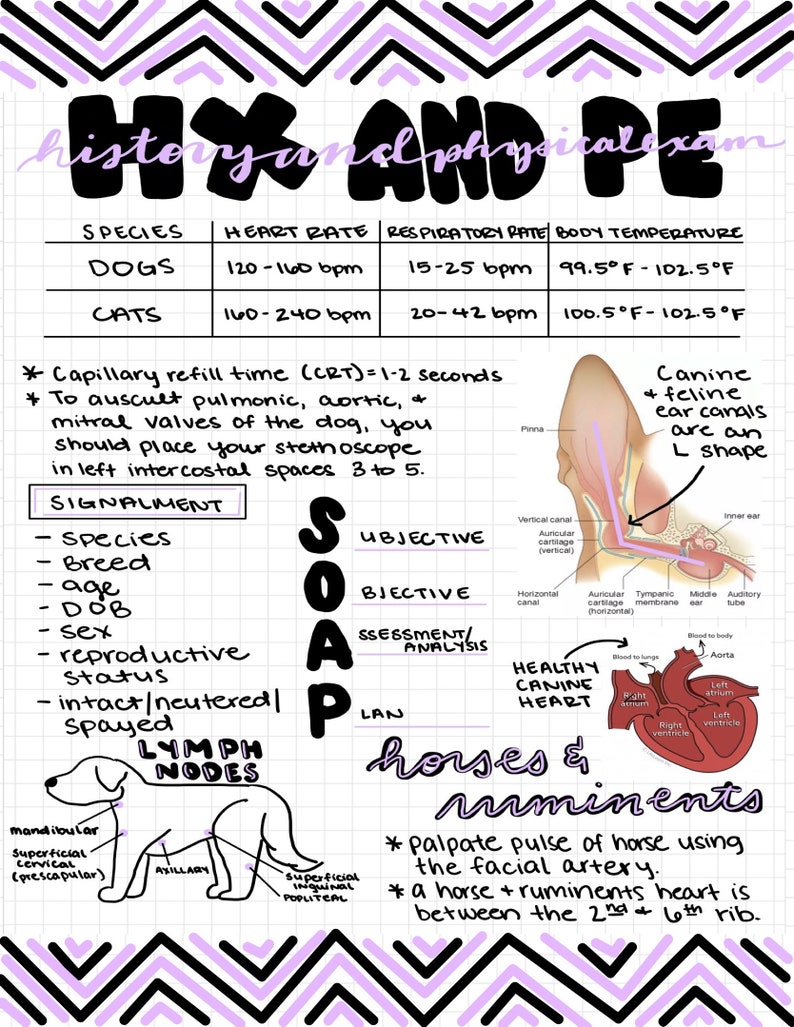 HX AND PE
history and physical exam
SPECIES HEART RATE RESPIRATORY RATE BODY TEMPERATURE
DOGS 120-160 bpm 15-25 bpm 99.5°F - 102.5°F
CATS 160-240 bpm 20-42 bpm 100.5°F - 102.5°F
* Capillary refill time (CRT) = 1-2 seconds
* To auscult pulmonic, aortic, &
mitral valves of the dog, you
should place your stethoscope
in left intercostal spaces 3 to 5.
Canine
& feline
ear canals
are an
L shape
Pinna
Vertical canal
Auricular
cartilage
(vertical)
Horizontal
canal
Auricular
cartilage
(horizontal)
Tympanic
membrane
Middle
ear
Auditory
tube
Inner ear
SIGNALMENT
- species
- Breed
- age
- DOB
- sex
- reproductive
status
- intact/neutered/
spayed
SUBJECTIVE
OBJECTIVE
ASSESSMENT/
ANALYSIS
PLAN
HEALTHY
CANINE
HEART
Blood to body
Blood to lungs
Aorta
Right
atrium
Left
atrium
Right
ventricle
Left
ventricle
LYMPH
NODES
mandibular
superficial
cervical
(prescapular)
AXILLARY
superficial
inguinal
POPLITEAL
horses &
ruminents
* palpate pulse of horse using
the facial artery.
* a horse + ruminents heart is
between the 2nd & 6th rib.